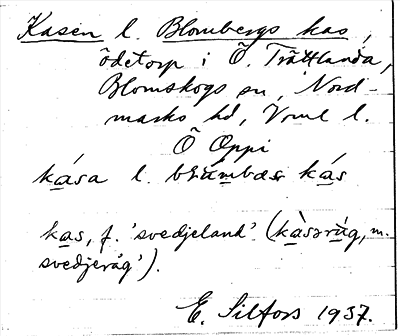 Kasen l. Blombergs kas,
ödetorp i Ö. Trättlanda,
Blomskogs sn, Nord-
marks hd, Vrml l.
Ö Oppi
kása l. blúmbær kás
kas, f. 'svedjeland' (kàsərùg, m.
svedjeråg').
E. Silfors 1937.